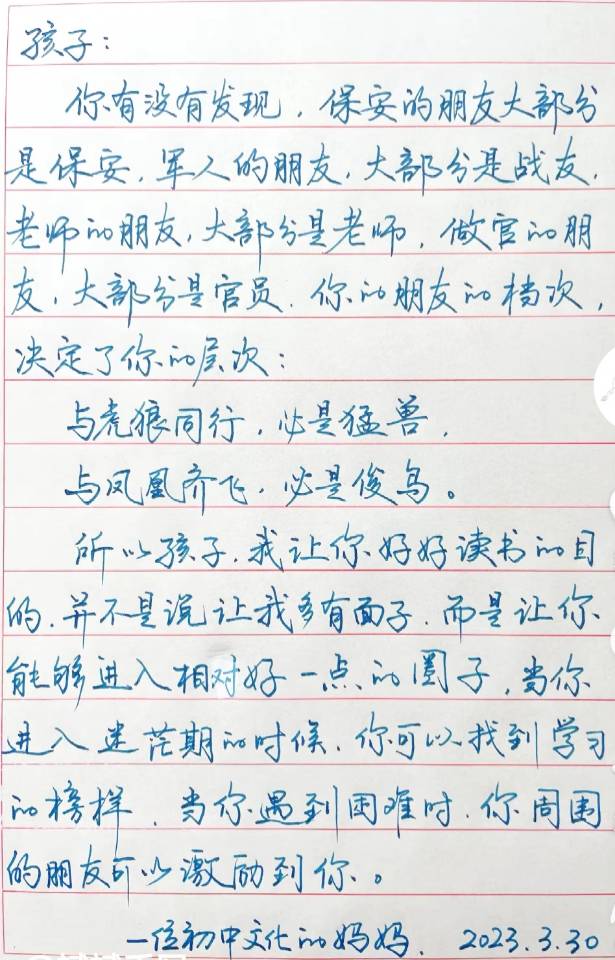 孩子：
你有没有发现，保安的朋友大部分
是保安，军人的朋友，大部分是战友，
老师的朋友，大部分是老师，做官的朋
友，大部分是官员，你的朋友的档次，
决定了你的层次：
与虎狼同行，必是猛兽，
与凤凰齐飞，必是俊鸟。
所以孩子，我让你好好读书的目
的，并不是说让我多有面子，而是让你
能够进入相对好一点的圈子，当你
进入迷茫期的时候，你可以找到学习
的榜样，当你遇到困难时，你周围
的朋友可以激励到你。
一位初中文化的妈妈，2023.3.30